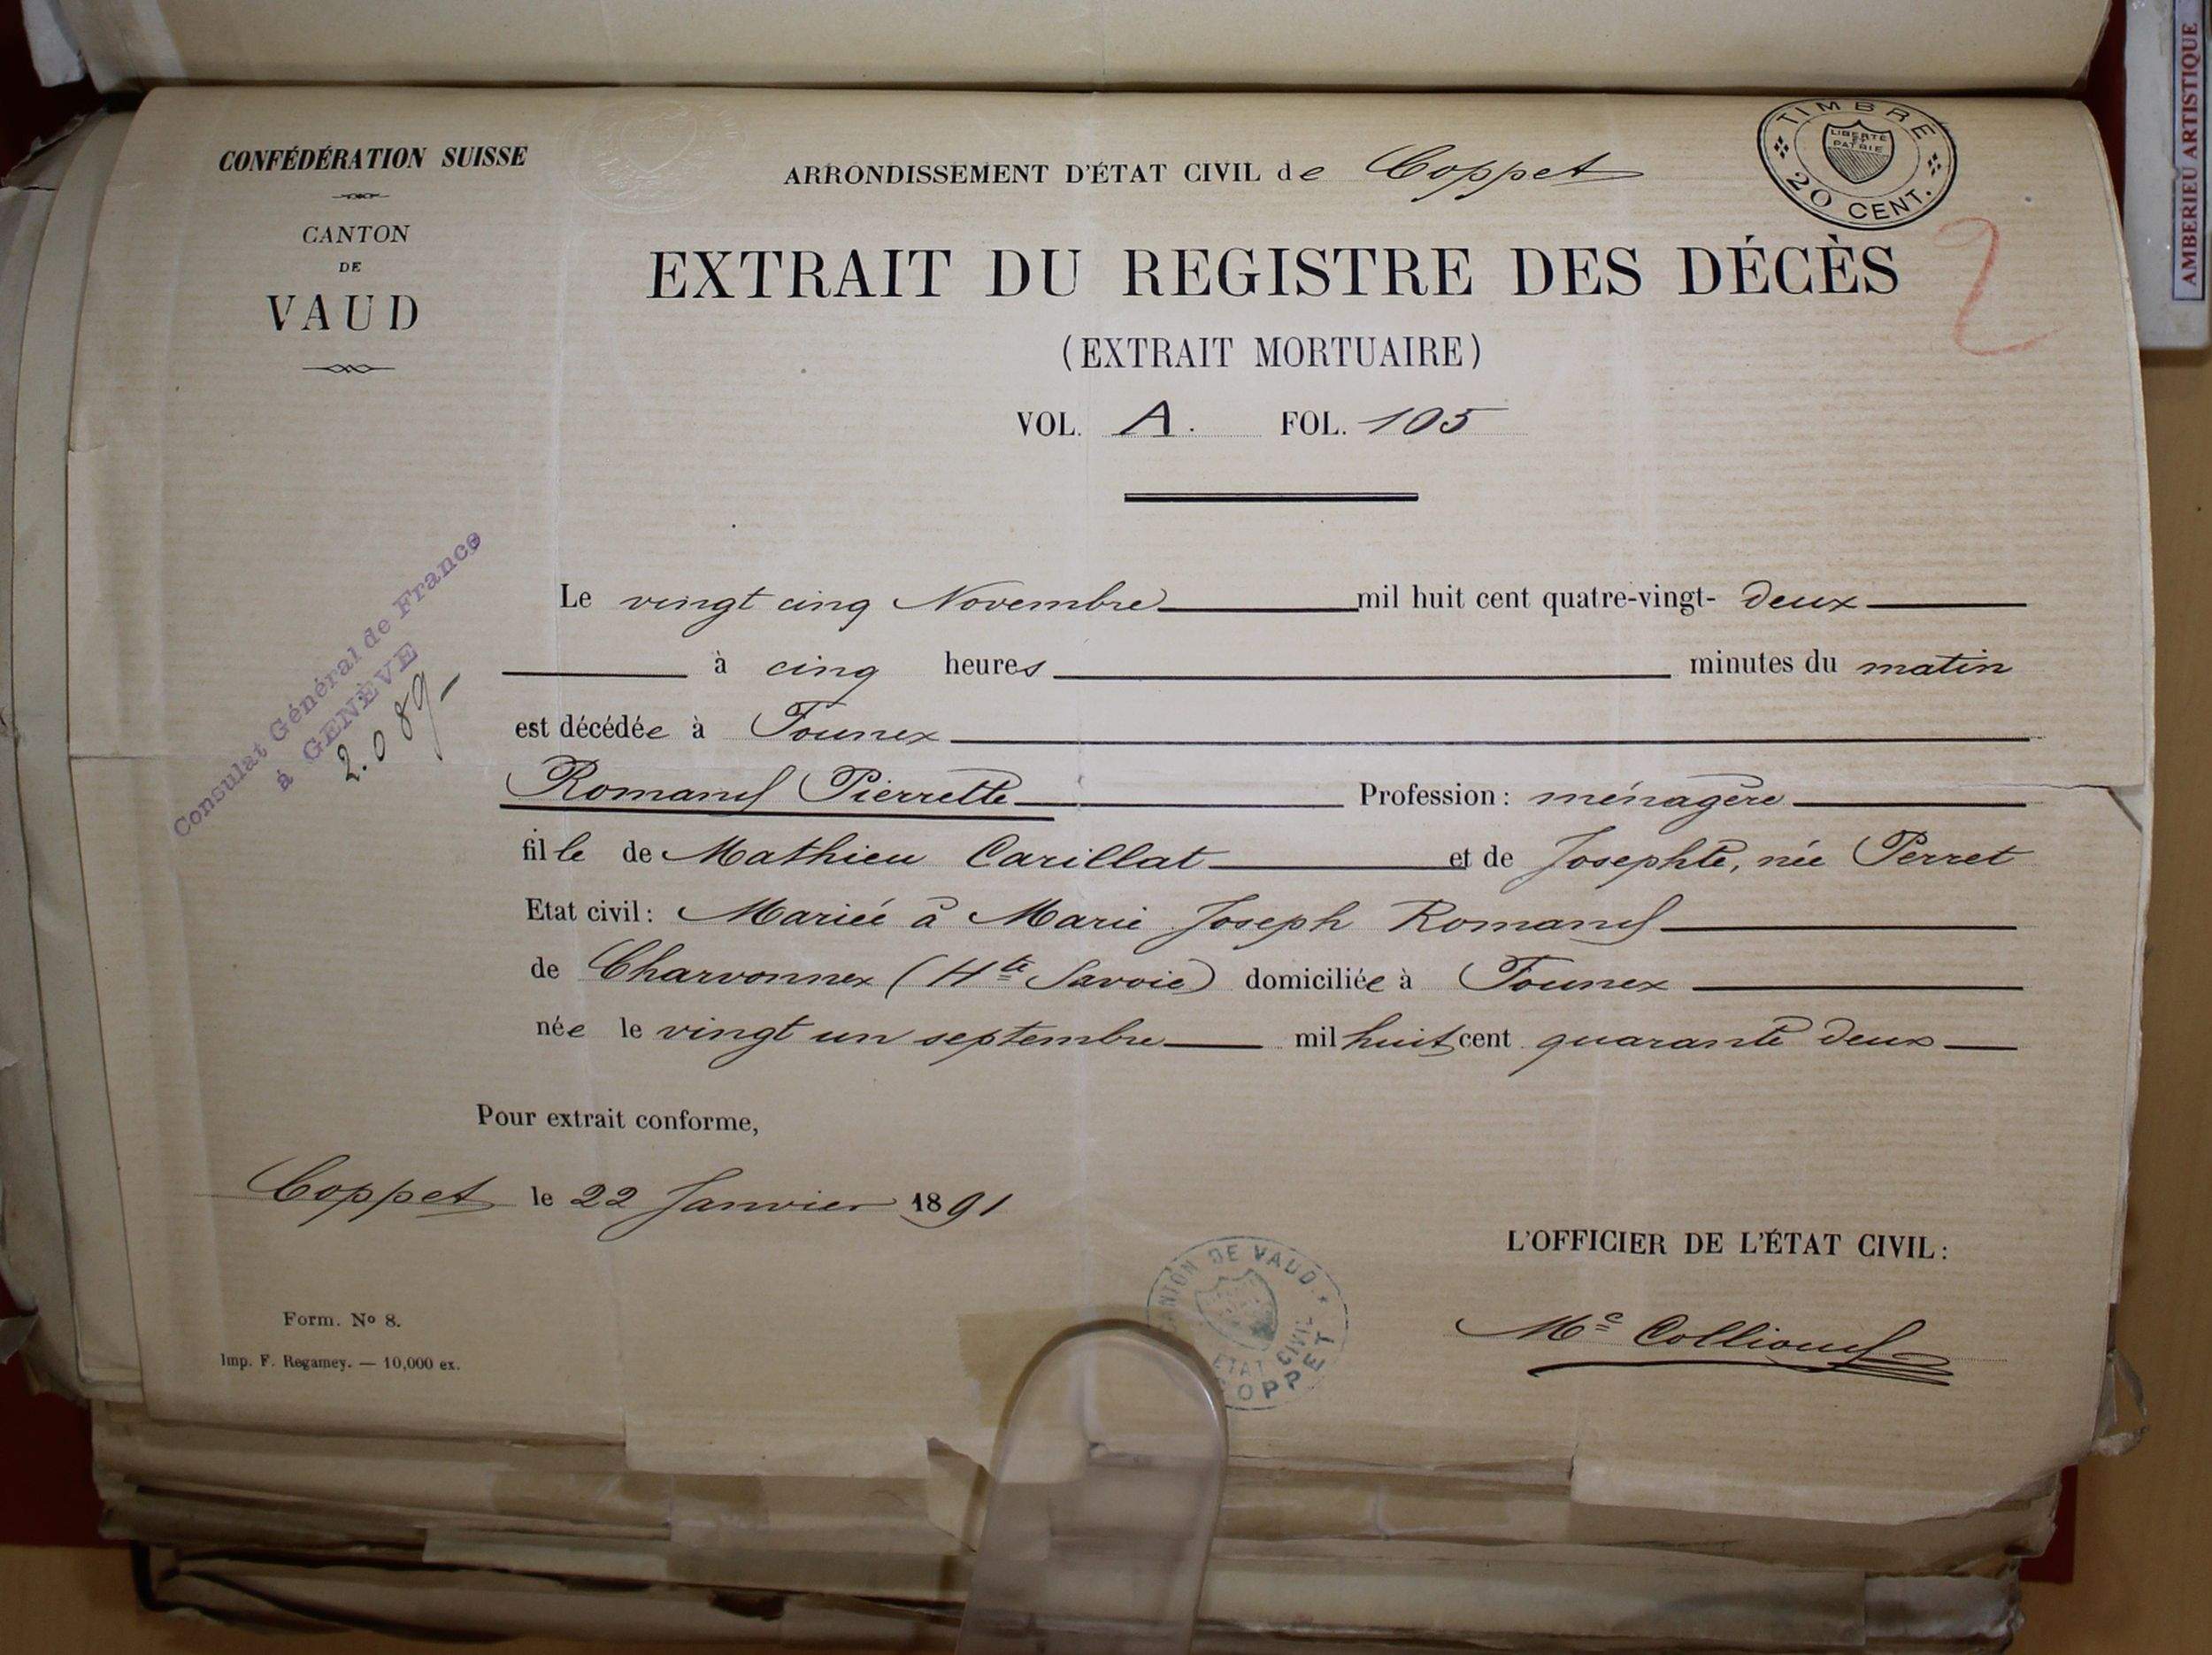 CONFÉDÉRATION SUISSE
CANTON
DE
VAUD
ARRONDISSEMENT D'ÉTAT CIVIL de Coppet
TIMBRE
LIBERTÉ
ET
PATRIE
20 CENT.
AMBERIEU ARTISTIQUE
EXTRAIT DU REGISTRE DES DÉCÈS
2
(EXTRAIT MORTUAIRE)
VOL. A. FOL. 105
Consulat Général de France
à GENÈVE
2.089-
Le vingt cinq Novembre mil huit cent quatre-vingt- deux
à cinq heures minutes du matin
est décédée à Founex
Romand Pierrette Profession: ménagère
fille de Mathieu Carillat et de Josephte, née Perret
Etat civil: Mariée à Marie Joseph Romand
de Charvonnex (Hte Savoie) domiciliée à Founex
née le vingt un septembre mil huit cent quarante deux
Pour extrait conforme,
Coppet le 22 Janvier 1891
L'OFFICIER DE L'ÉTAT CIVIL:
CANTON DE VAUD
ETAT CIVIL
COPPET
Mc Colliond
Form. No 8.
Imp. F. Regamey. — 10,000 ex.